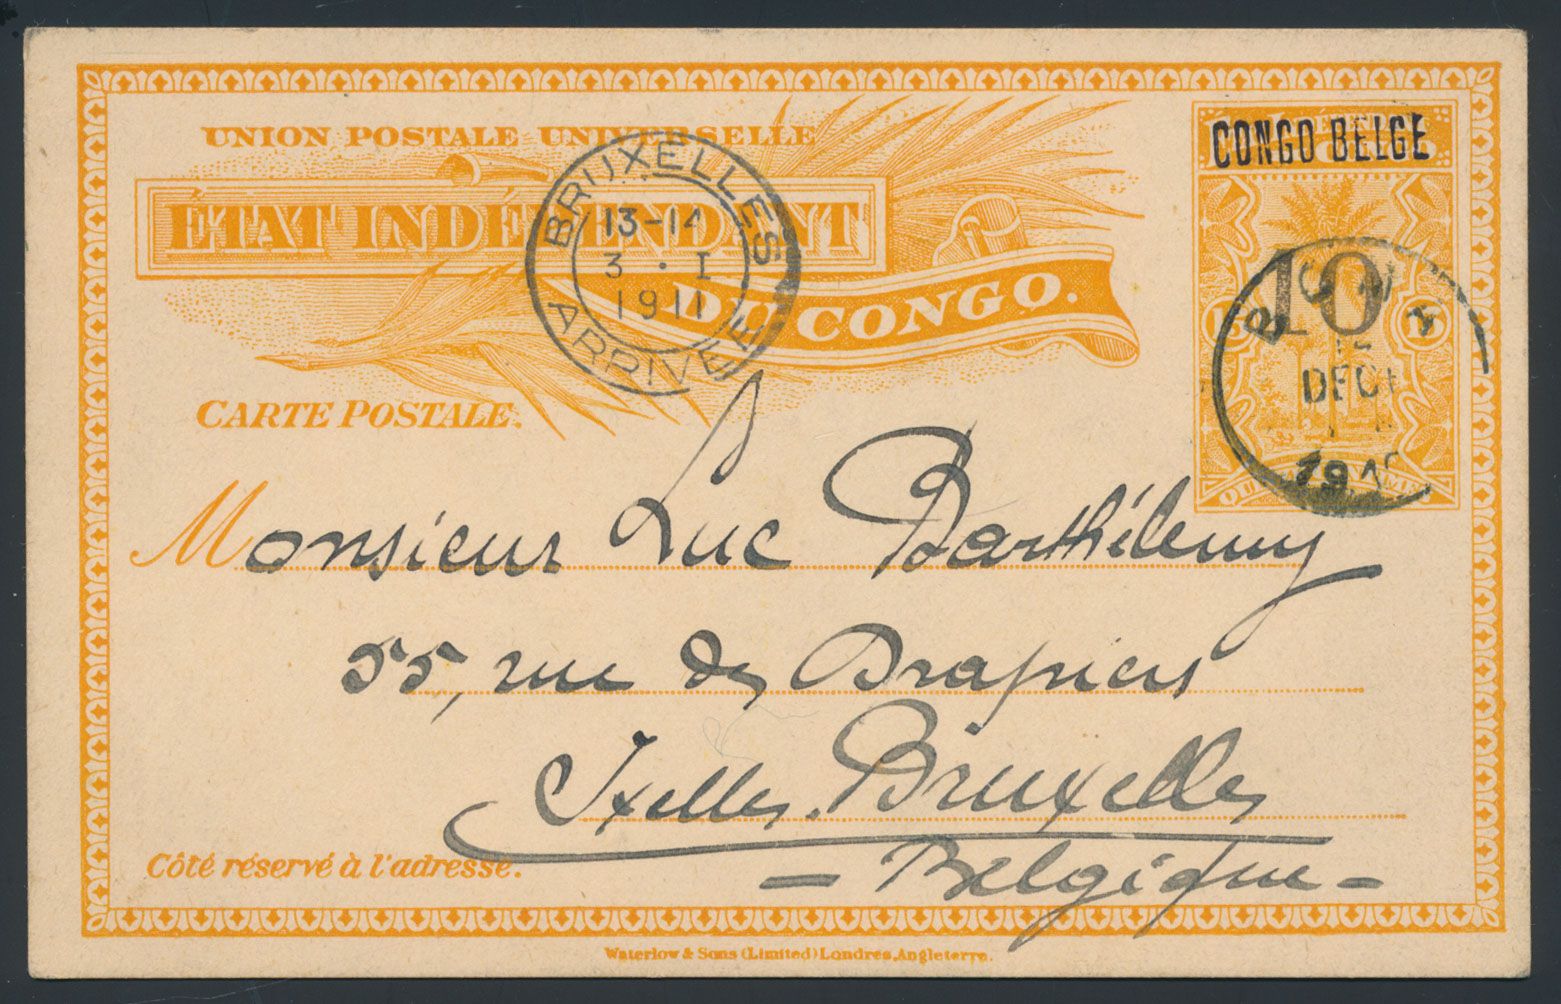 UNION POSTALE UNIVERSELLE
ÉTAT INDÉPENDANT
DU CONGO.
CARTE POSTALE.
BRUXELLES
13-14
3 . I
1911
ARRIVÉE
CONGO BELGE
10
15 15
BOMA
DECE
19
Monsieur Luc Barthélemy
55, rue des Drapiers
Ixelles. Bruxelles
— Belgique —
Côté réservé à l'adresse.
Waterlow & Sons (Limited) Londres, Angleterre.